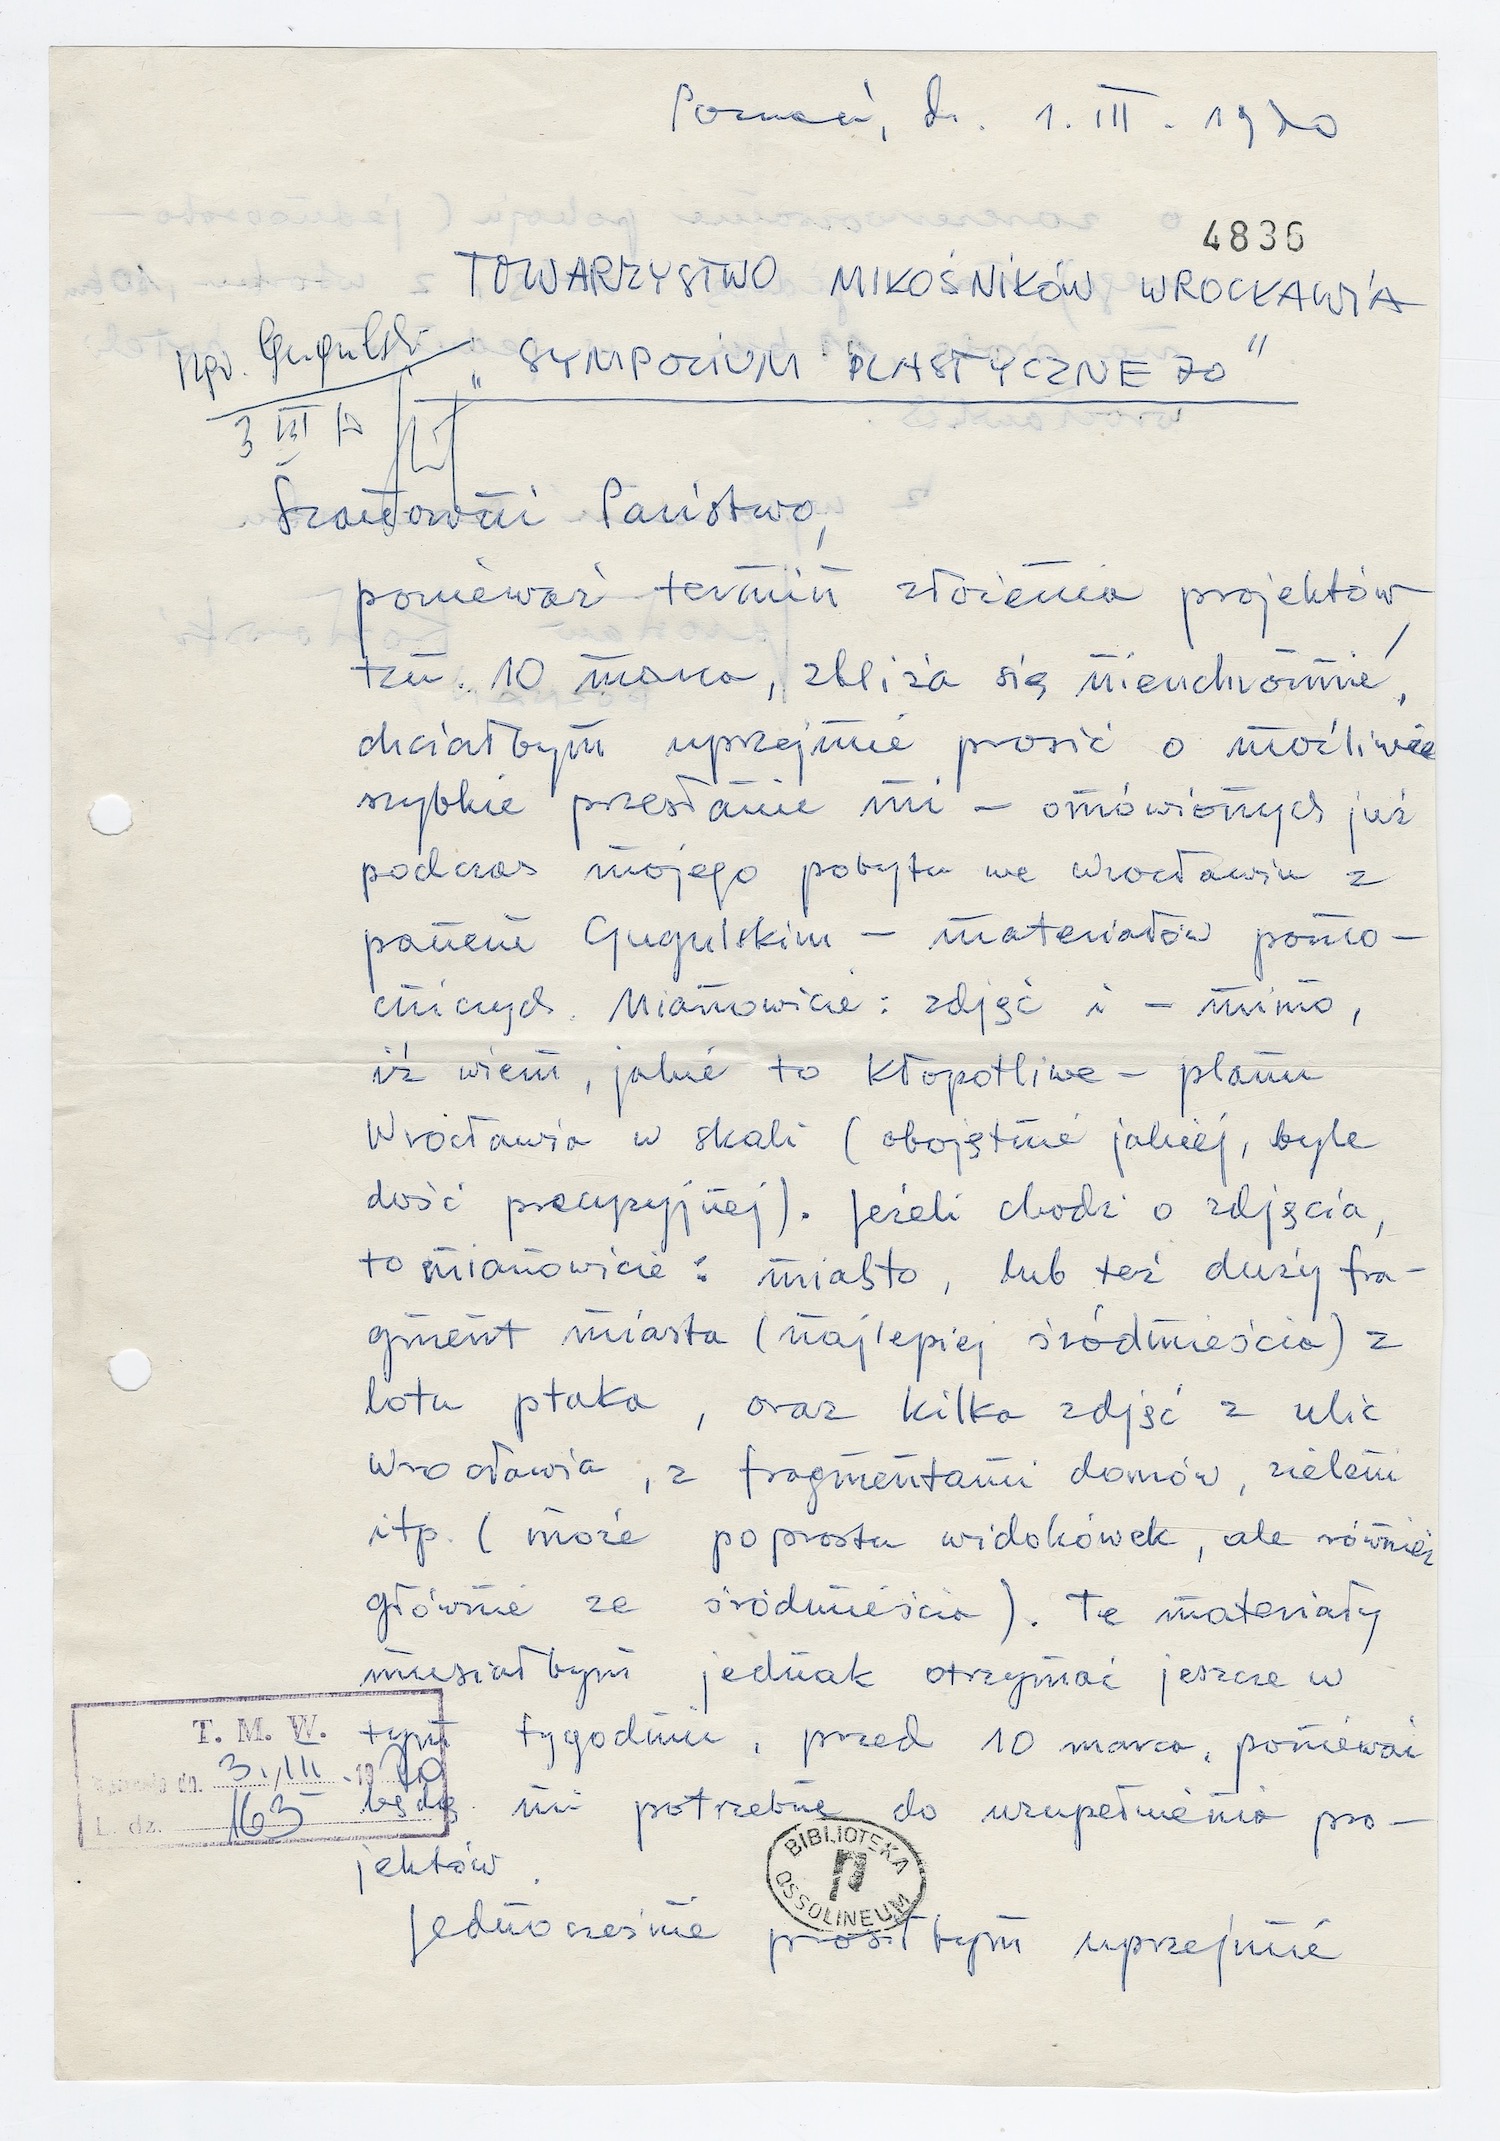 Poznań, dn. 1. III. 1970
4836
TOWARZYSTWO MIŁOŚNIKÓW WROCŁAWIA
"SYMPOZIUM PLASTYCZNE 70"
Kol. Gugulski
3 III 70
Szanowni Państwo,
ponieważ termin złożenia projektów,
tzn. 10 marca, zbliża się nieuchronnie,
chciałbym uprzejmie prosić o możliwie
szybkie przesłanie mi – omówionych już
podczas mojego pobytu we Wrocławiu z
panem Gugulskim – materiałów pomo-
cniczych. Mianowicie: zdjęć i – mimo,
iż wiem, jakie to kłopotliwe – planu
Wrocławia w skali (obojętnie jakiej, byle
dość precyzyjnej). Jeżeli chodzi o zdjęcia,
to mianowicie: miasto, lub też duży fra-
gment miasta (najlepiej śródmieścia) z
lotu ptaka, oraz kilka zdjęć z ulic
Wrocławia, z fragmentami domów, zieleni
itp. (może poprostu widokówek, ale również
głównie ze śródmieścia). Te materiały
musiałbym jednak otrzymać jeszcze w
tym tygodniu, przed 10 marca, ponieważ
będą mi potrzebne do uzupełnienia pro-
jektów.
Jednocześnie prosiłbym uprzejmie
T. M. W.
dn. 3./III. 1970
L. dz. 163
BIBLIOTEKA
OSSOLINEUM